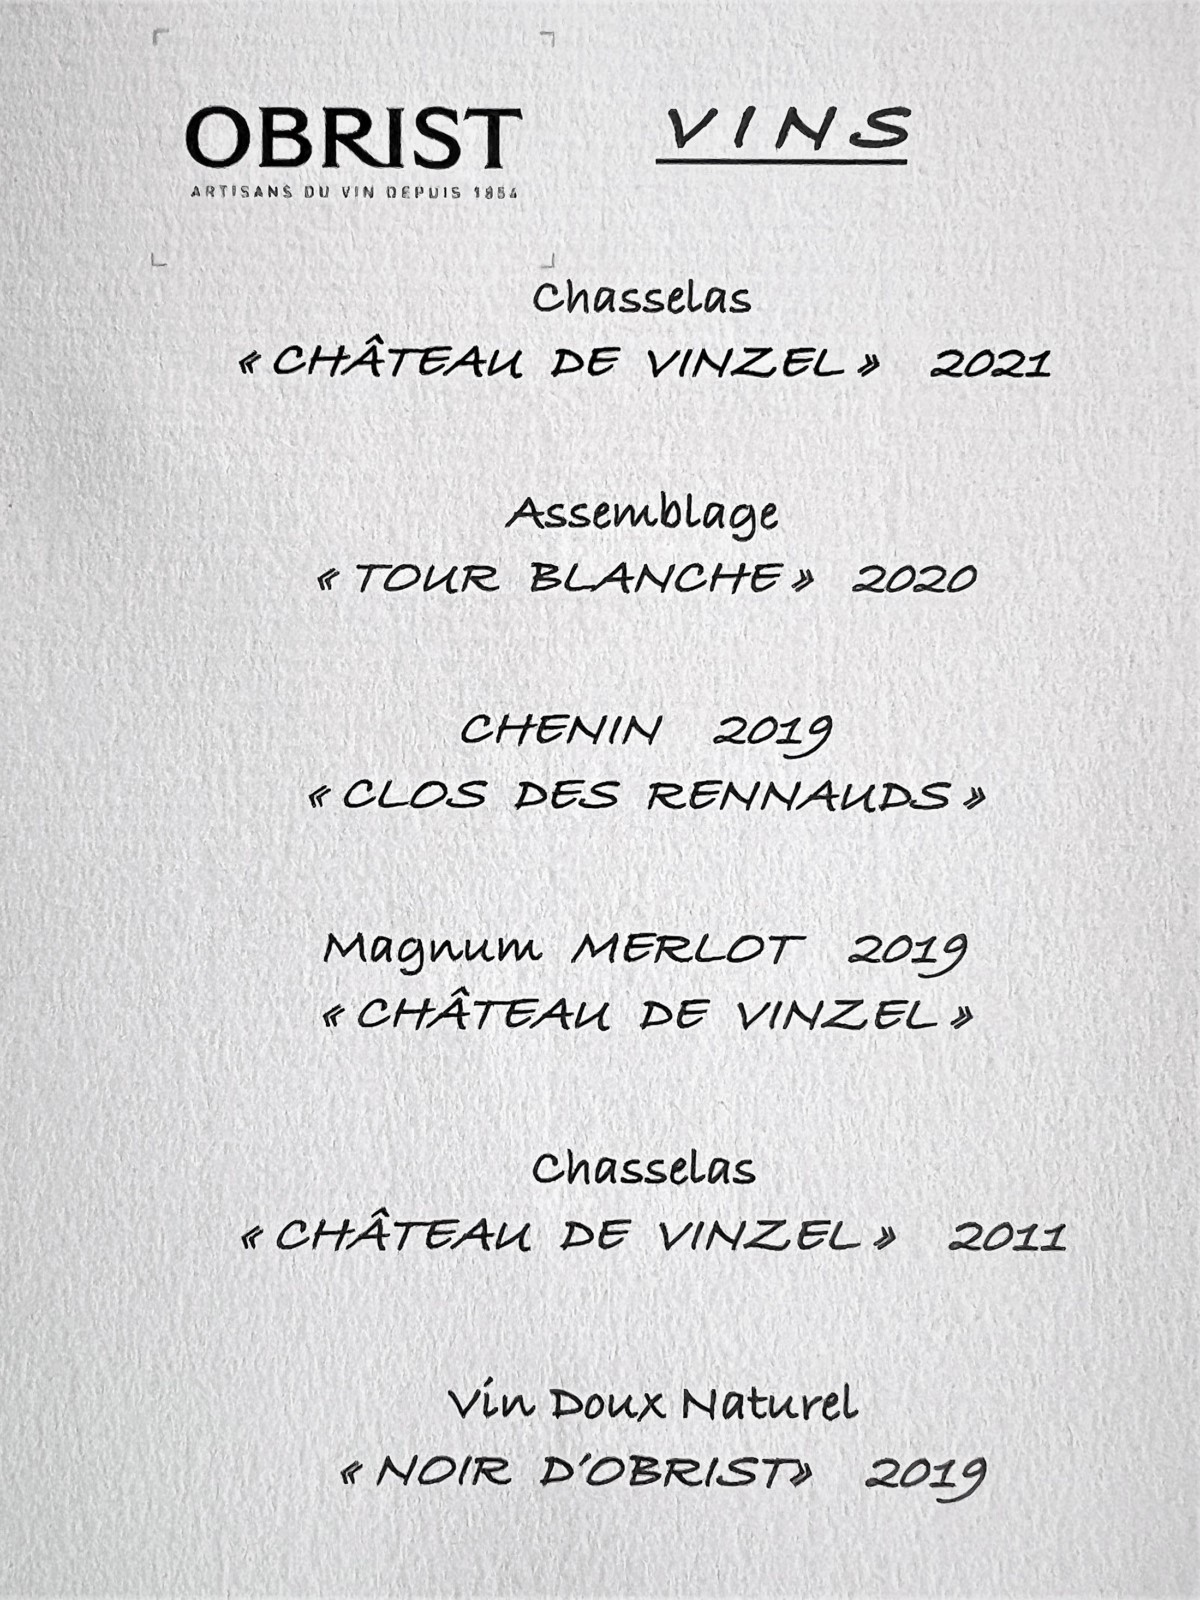 OBRIST
VINS
ARTISANS DU VIN DEPUIS 1854
Chasselas
« CHÂTEAU DE VINZEL » 2021
Assemblage
« TOUR BLANCHE » 2020
CHENIN 2019
« CLOS DES RENNAUDS »
Magnum MERLOT 2019
« CHÂTEAU DE VINZEL »
Chasselas
« CHÂTEAU DE VINZEL » 2011
Vin Doux Naturel
« NOIR D'OBRIST» 2019